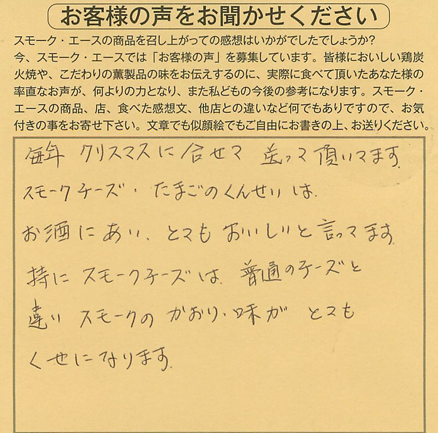 お客様の声をお聞かせください
スモーク・エースの商品を召し上がっての感想はいかがでしたでしょうか?
今、スモーク・エースでは「お客様の声」を募集しています。皆様においしい鶏炭
火焼や、こだわりの薫製品の味をお伝えするのに、実際に食べて頂いたあなた様の
率直なお声が、何よりの力となり、また私どもの今後の参考になります。スモーク・
エースの商品、店、食べた感想文、他店との違いなど何でもありですので、お気
付きの事をお寄せ下さい。文章でも似顔絵でもご自由にお書きの上、お送りください。
毎年 クリスマスに合せて 送って頂いてます。
スモークチーズ・たまごのくんせいは、
お酒にあい、とてもおいしいと言ってます。
特にスモークチーズは、普通のチーズと
違い スモークのかおり・味がとても
くせになります。